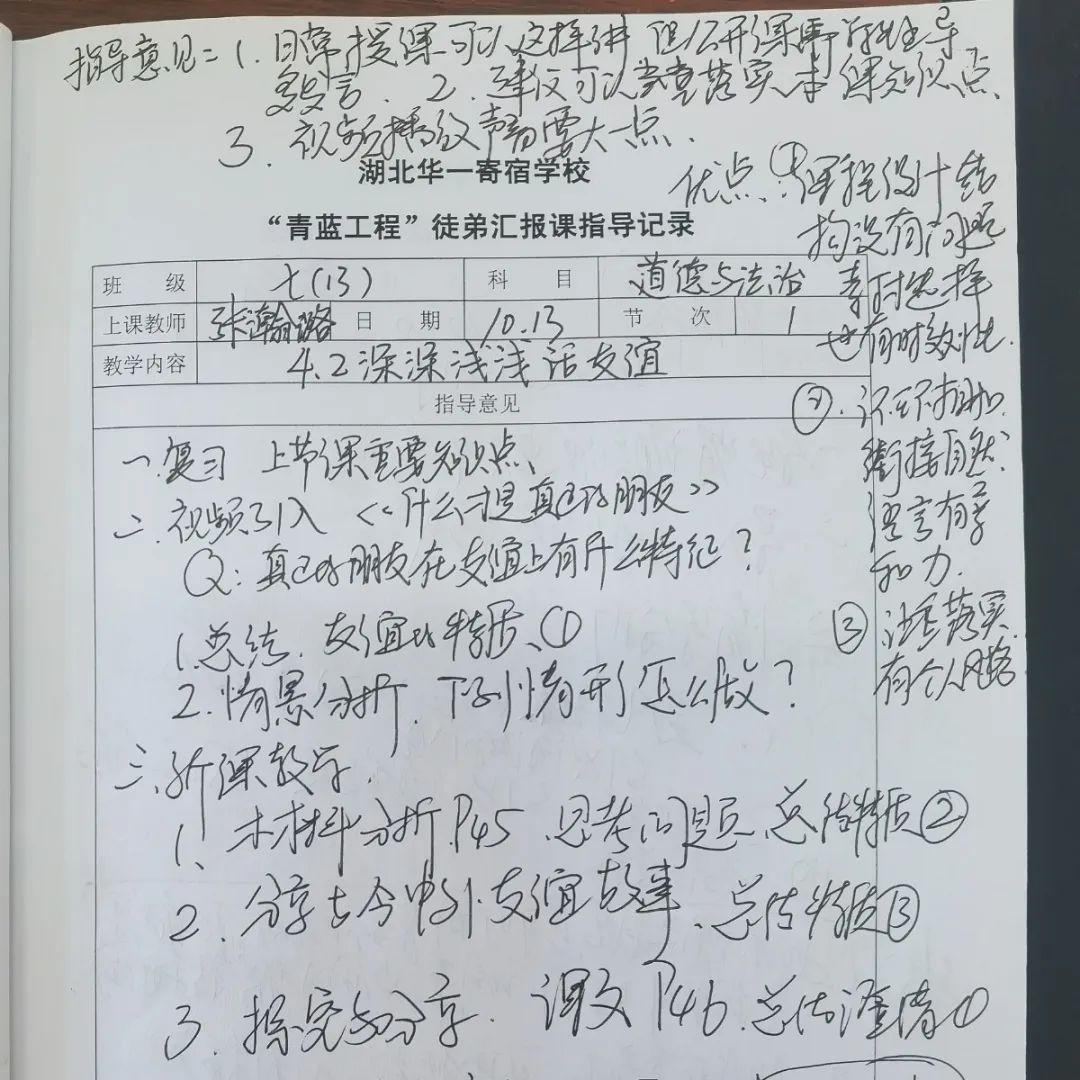 指导意见：1. 日常授课可以这样讲 但公开课需学生主导
多发言. 2. 建议可以当堂落实本课知识点
3. 视频播放声音要大一点.
湖北华一寄宿学校
“青蓝工程”徒弟汇报课指导记录
班 级 七(13) 科 目 道德与法治
上课教师 张瀚璐 日 期 10.13 节 次 1
教学内容 4.2深深浅浅话友谊
指导意见
一. 复习 上节课重要知识点、
二. 视频引入 《什么才是真正的朋友》
Q: 真正的朋友在友谊上有什么特征？
1. 总结. 友谊的特质、①
2. 情景分析. 下列情形怎么做？
三、新课教学.
1、材料分析P45、思考问题、总结特质②
2. 分享古今中外友谊故事、总结特质③
3. 探究与分享. 课文P46. 总结澄清①
优点: ①课程设计结
构没有问题
素材选择
也有时效性.
②. 环环相扣.
衔接自然
语言有亲
和力.
③ 注重落实.
有个人风格